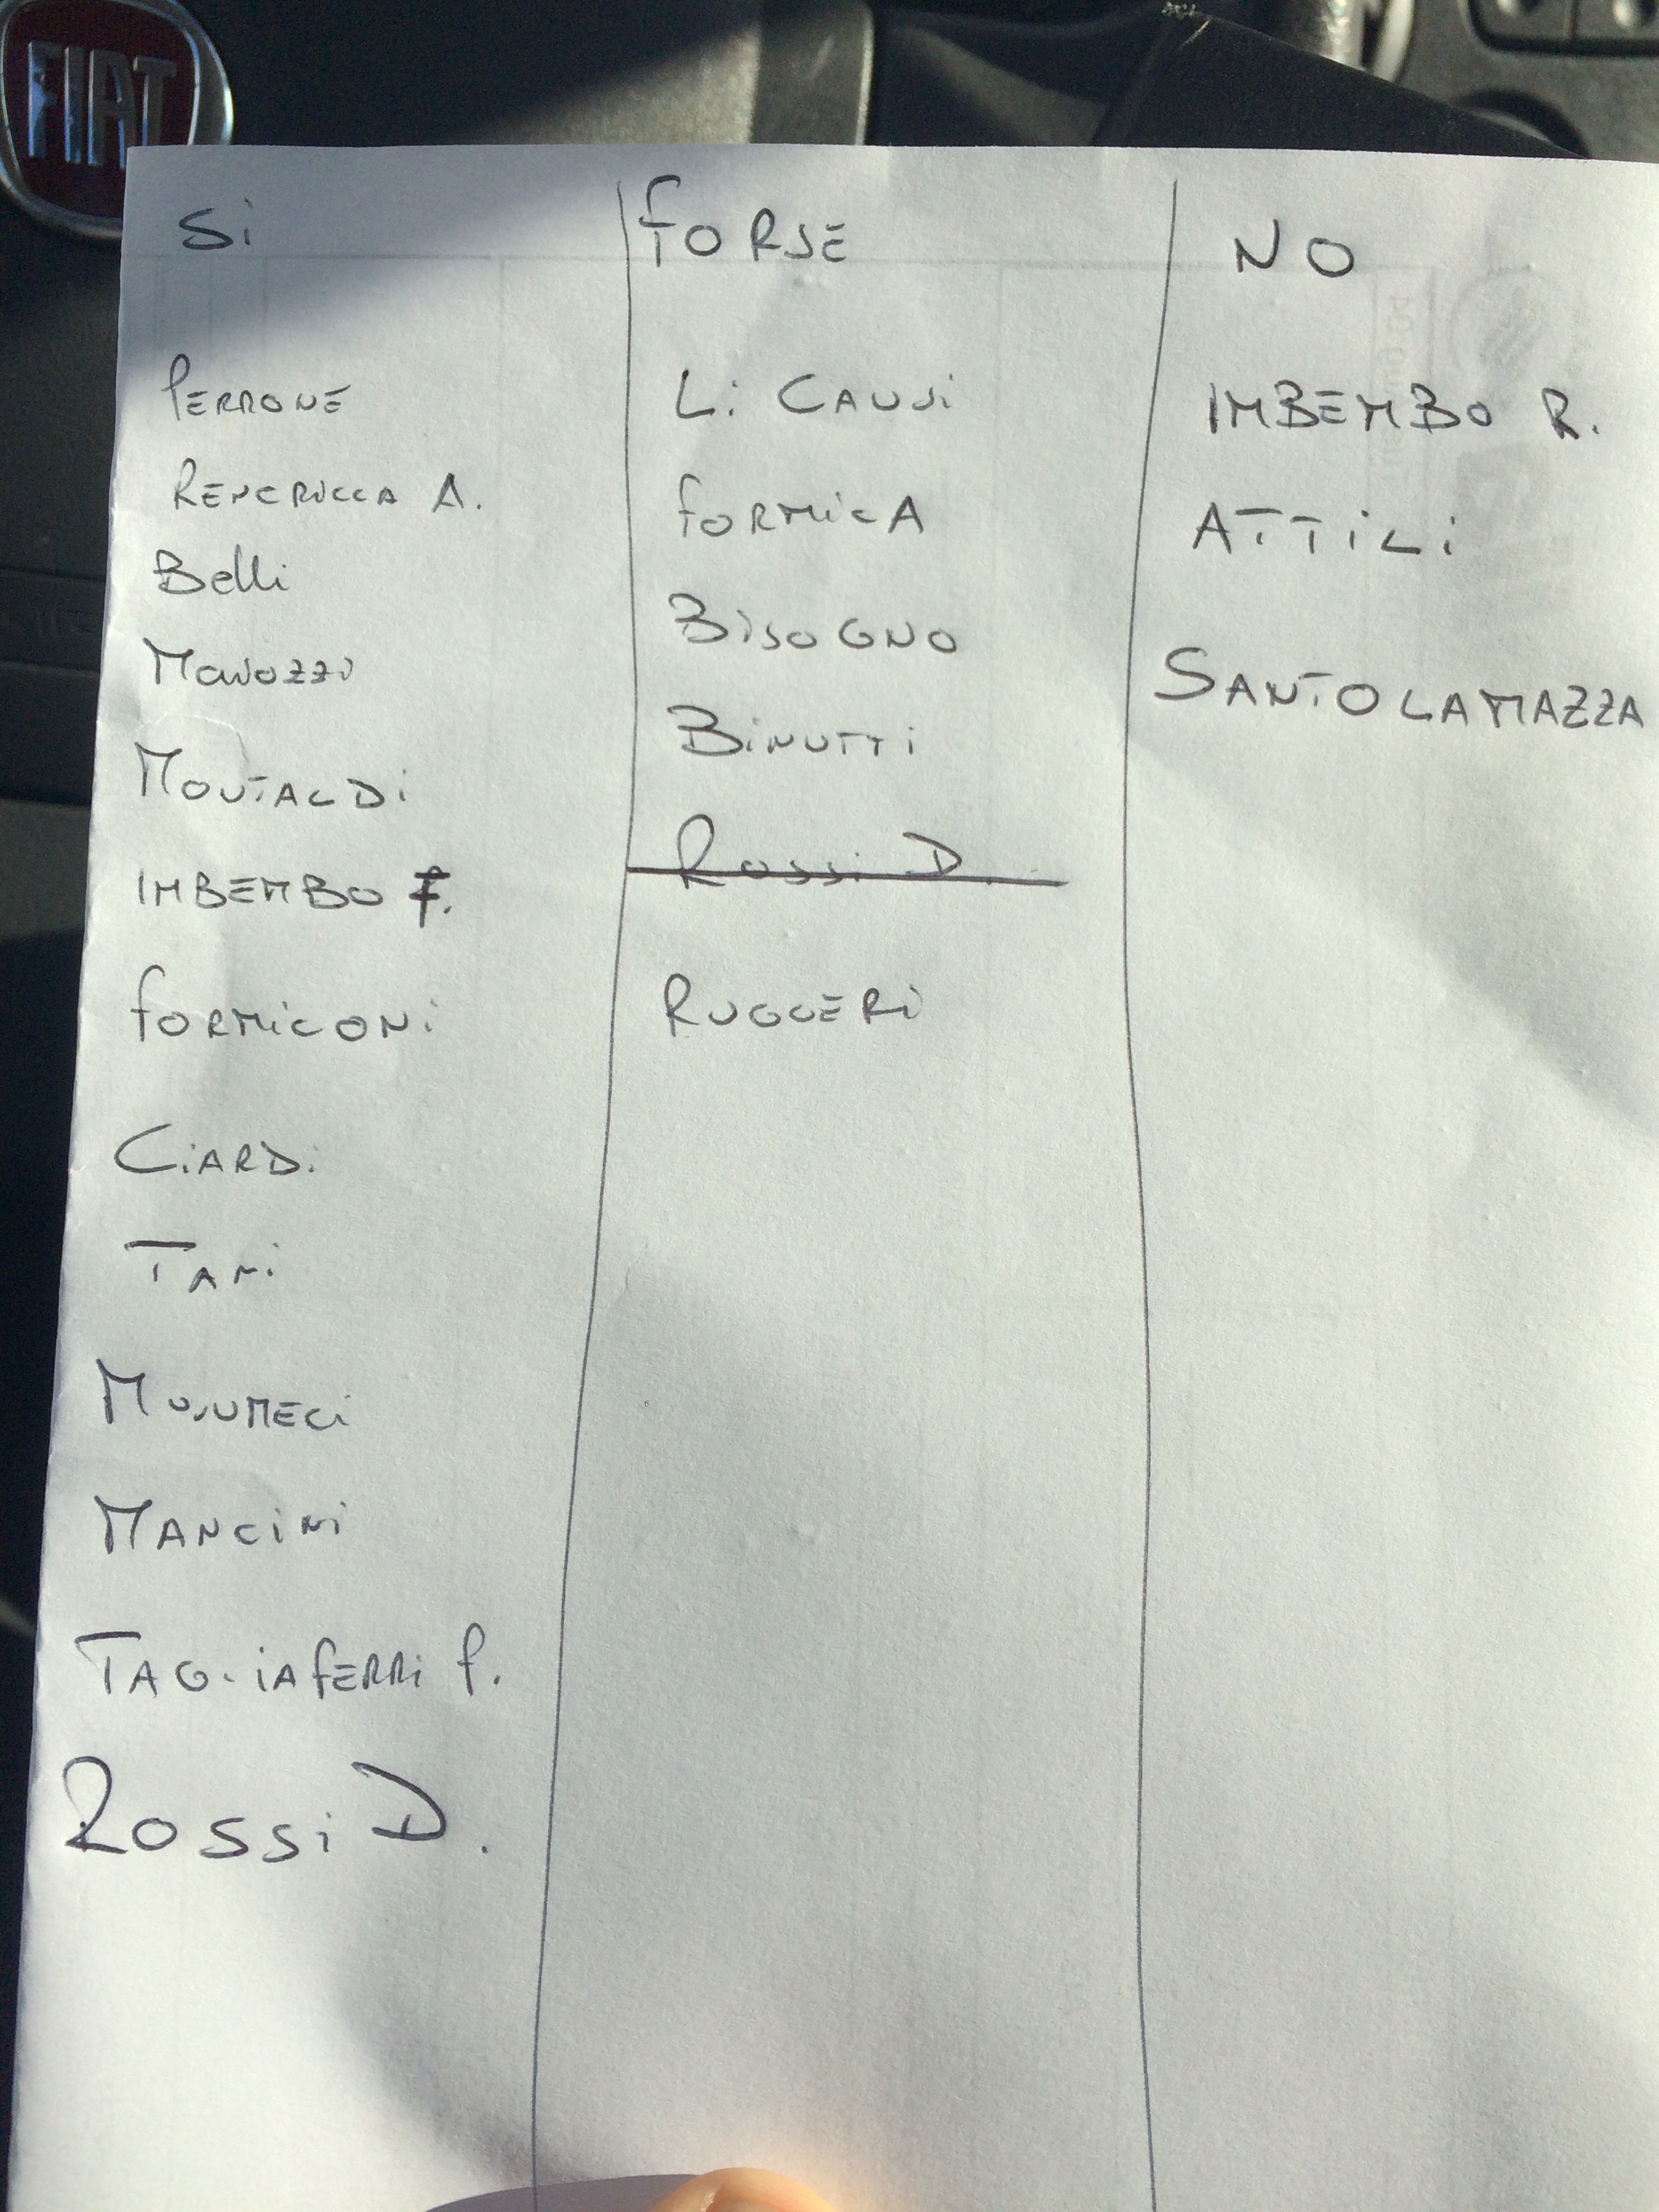 FIAT
Si
FORSE
NO
PERRONE
RENCRICCA A.
Belli
MONTALDI
IMBEMBO F.
FORMICONI
CIARDI
TANI
MUSUMECI
MANCINI
TAGLIAFERRI P.
ROSSI D.
Li CAUSi
FORMICA
BISOGNO
BINUTTI
ROSSI D.
RUGGERI
IMBEMBO R.
ATTILI
SANTOLAMAZZA